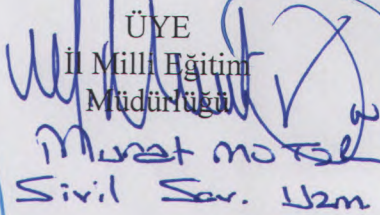 ÜYE
İl Milli Eğitim
Müdürlüğü
Murat
Sivil Sav. Uzm